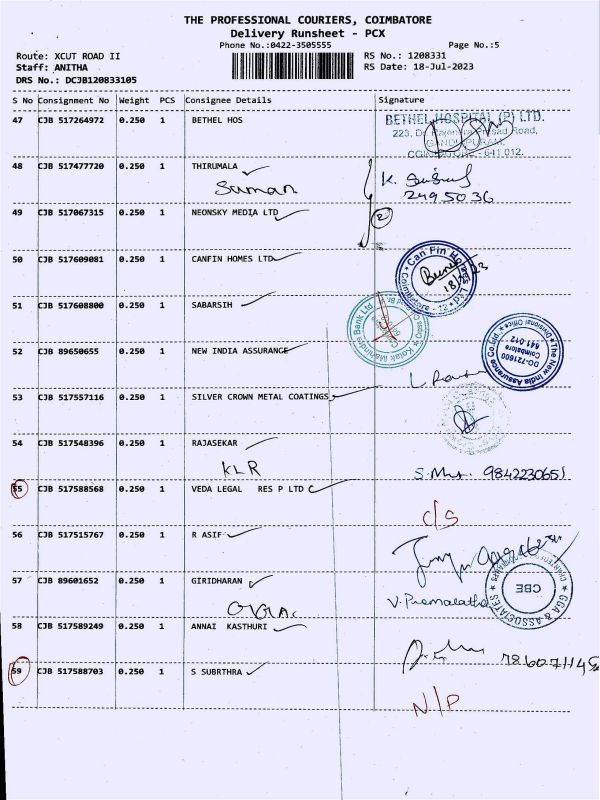 THE PROFESSIONAL COURIERS, COIMBATORE
Delivery Runsheet - PCX
Phone No.:0422-3505555
Page No.:5
Route: XCUT ROAD II
RS No.: 1208331
Staff: ANITHA
RS Date: 18-Jul-2023
DRS No.: DCJB120833105
S No Consignment No Weight PCS Consignee Details Signature
47 CJB 517264972 0.250 1 BETHEL HOS
BETHEL HOSPITAL (P) LTD.
223, Dr. Rajendra Prasad Road,
GANDHIPURAM,
COIMBATORE - 641 012.
48 CJB 517477720 0.250 1 THIRUMALA
Suman
K.
2495036
49 CJB 517067315 0.250 1 NEONSKY MEDIA LTD
2
50 CJB 517609081 0.250 1 CANFIN HOMES LTD
Can Fin Homes Ltd
Coimbatore - 12
51 CJB 517608800 0.250 1 SABARSIH
Kotak Mahindra Bank Ltd
52 CJB 89650655 0.250 1 NEW INDIA ASSURANCE
The New India Assurance Co.Ltd.
Divisional Office
DO-721600
Coimbatore
641 012
53 CJB 517557116 0.250 1 SILVER CROWN METAL COATINGS
54 CJB 517548396 0.250 1 RAJASEKAR
KLR
9842230651
55 CJB 517588568 0.250 1 VEDA LEGAL RES P LTD C
C/S
56 CJB 517515767 0.250 1 R ASIF
57 CJB 89601652 0.250 1 GIRIDHARAN
V. Premalatha
GGA & ASSOCIATES
CHARTERED ACCOUNTANTS
CBE
58 CJB 517589249 0.250 1 ANNAI KASTHURI
59 CJB 517588703 0.250 1 S SUBRTHRA
N/P